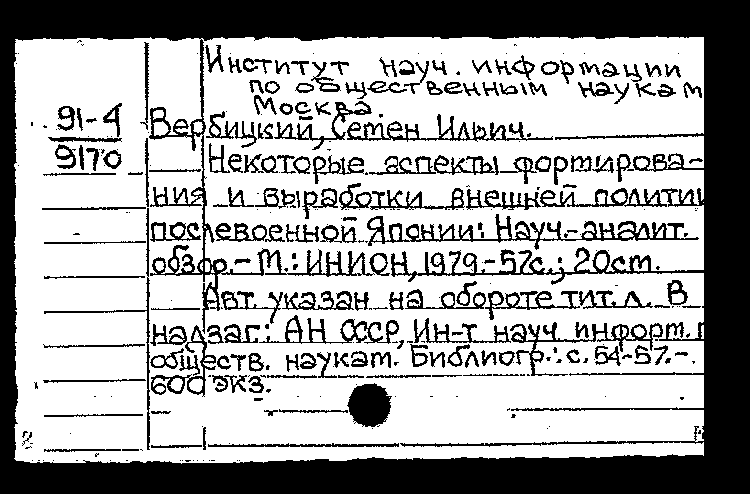 Институт науч. информации
по общественным наукам
Москва.
91-4
9170
Вербицкий, Семен Ильич.
Некоторые аспекты формирова-
ния и выработки внешней полити
послевоенной Японии: Науч.-аналит.
обзор.- М.: ИНИОН, 1979.-57с.; 20см.
Авт. указан на обороте тит. л. В
надзаг.: АН СССР, Ин-т науч информ. п
обществ. наукам. Библиогр.: с. 54-57.-.
600 экз.